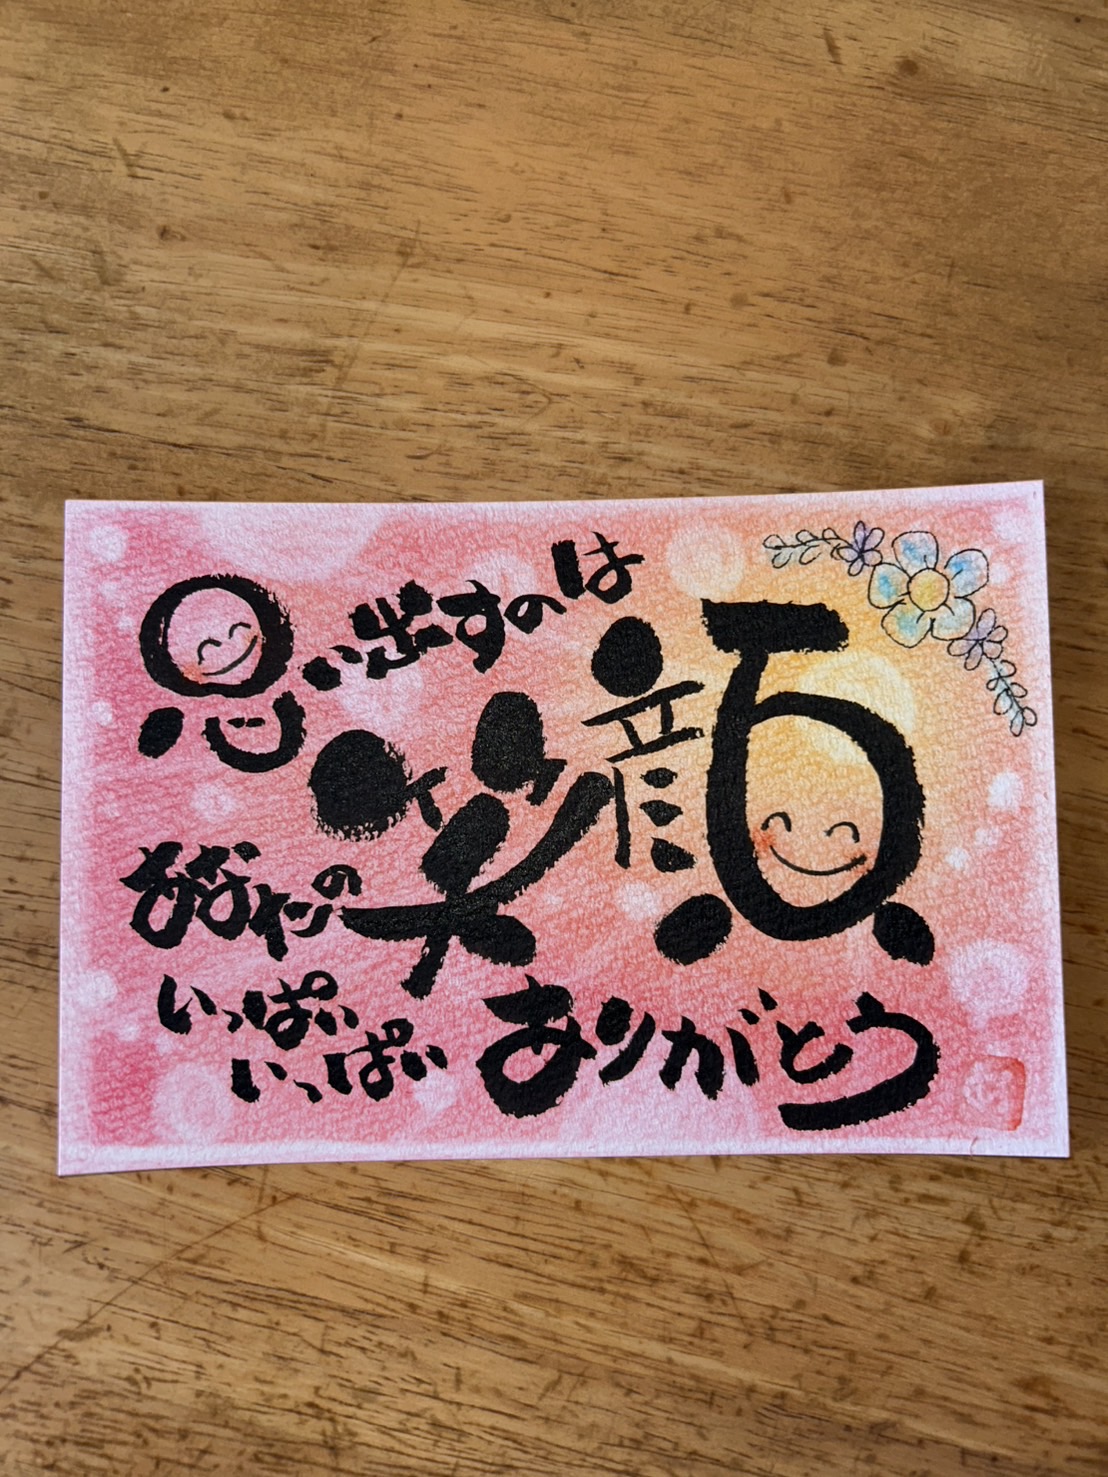 思い出すのは
笑顔
の
いっぱい
いっぱい
ありがとう